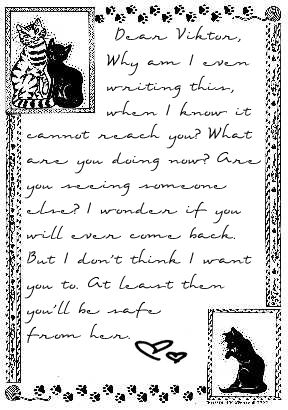 Dear Viktor,
Why am I even
writing this,
when I know it
cannot reach you? What
are you doing now? Are
you seeing someone
else? I wonder if you
will ever come back.
But I don't think I want
you to. At least then
you'll be safe
from her.